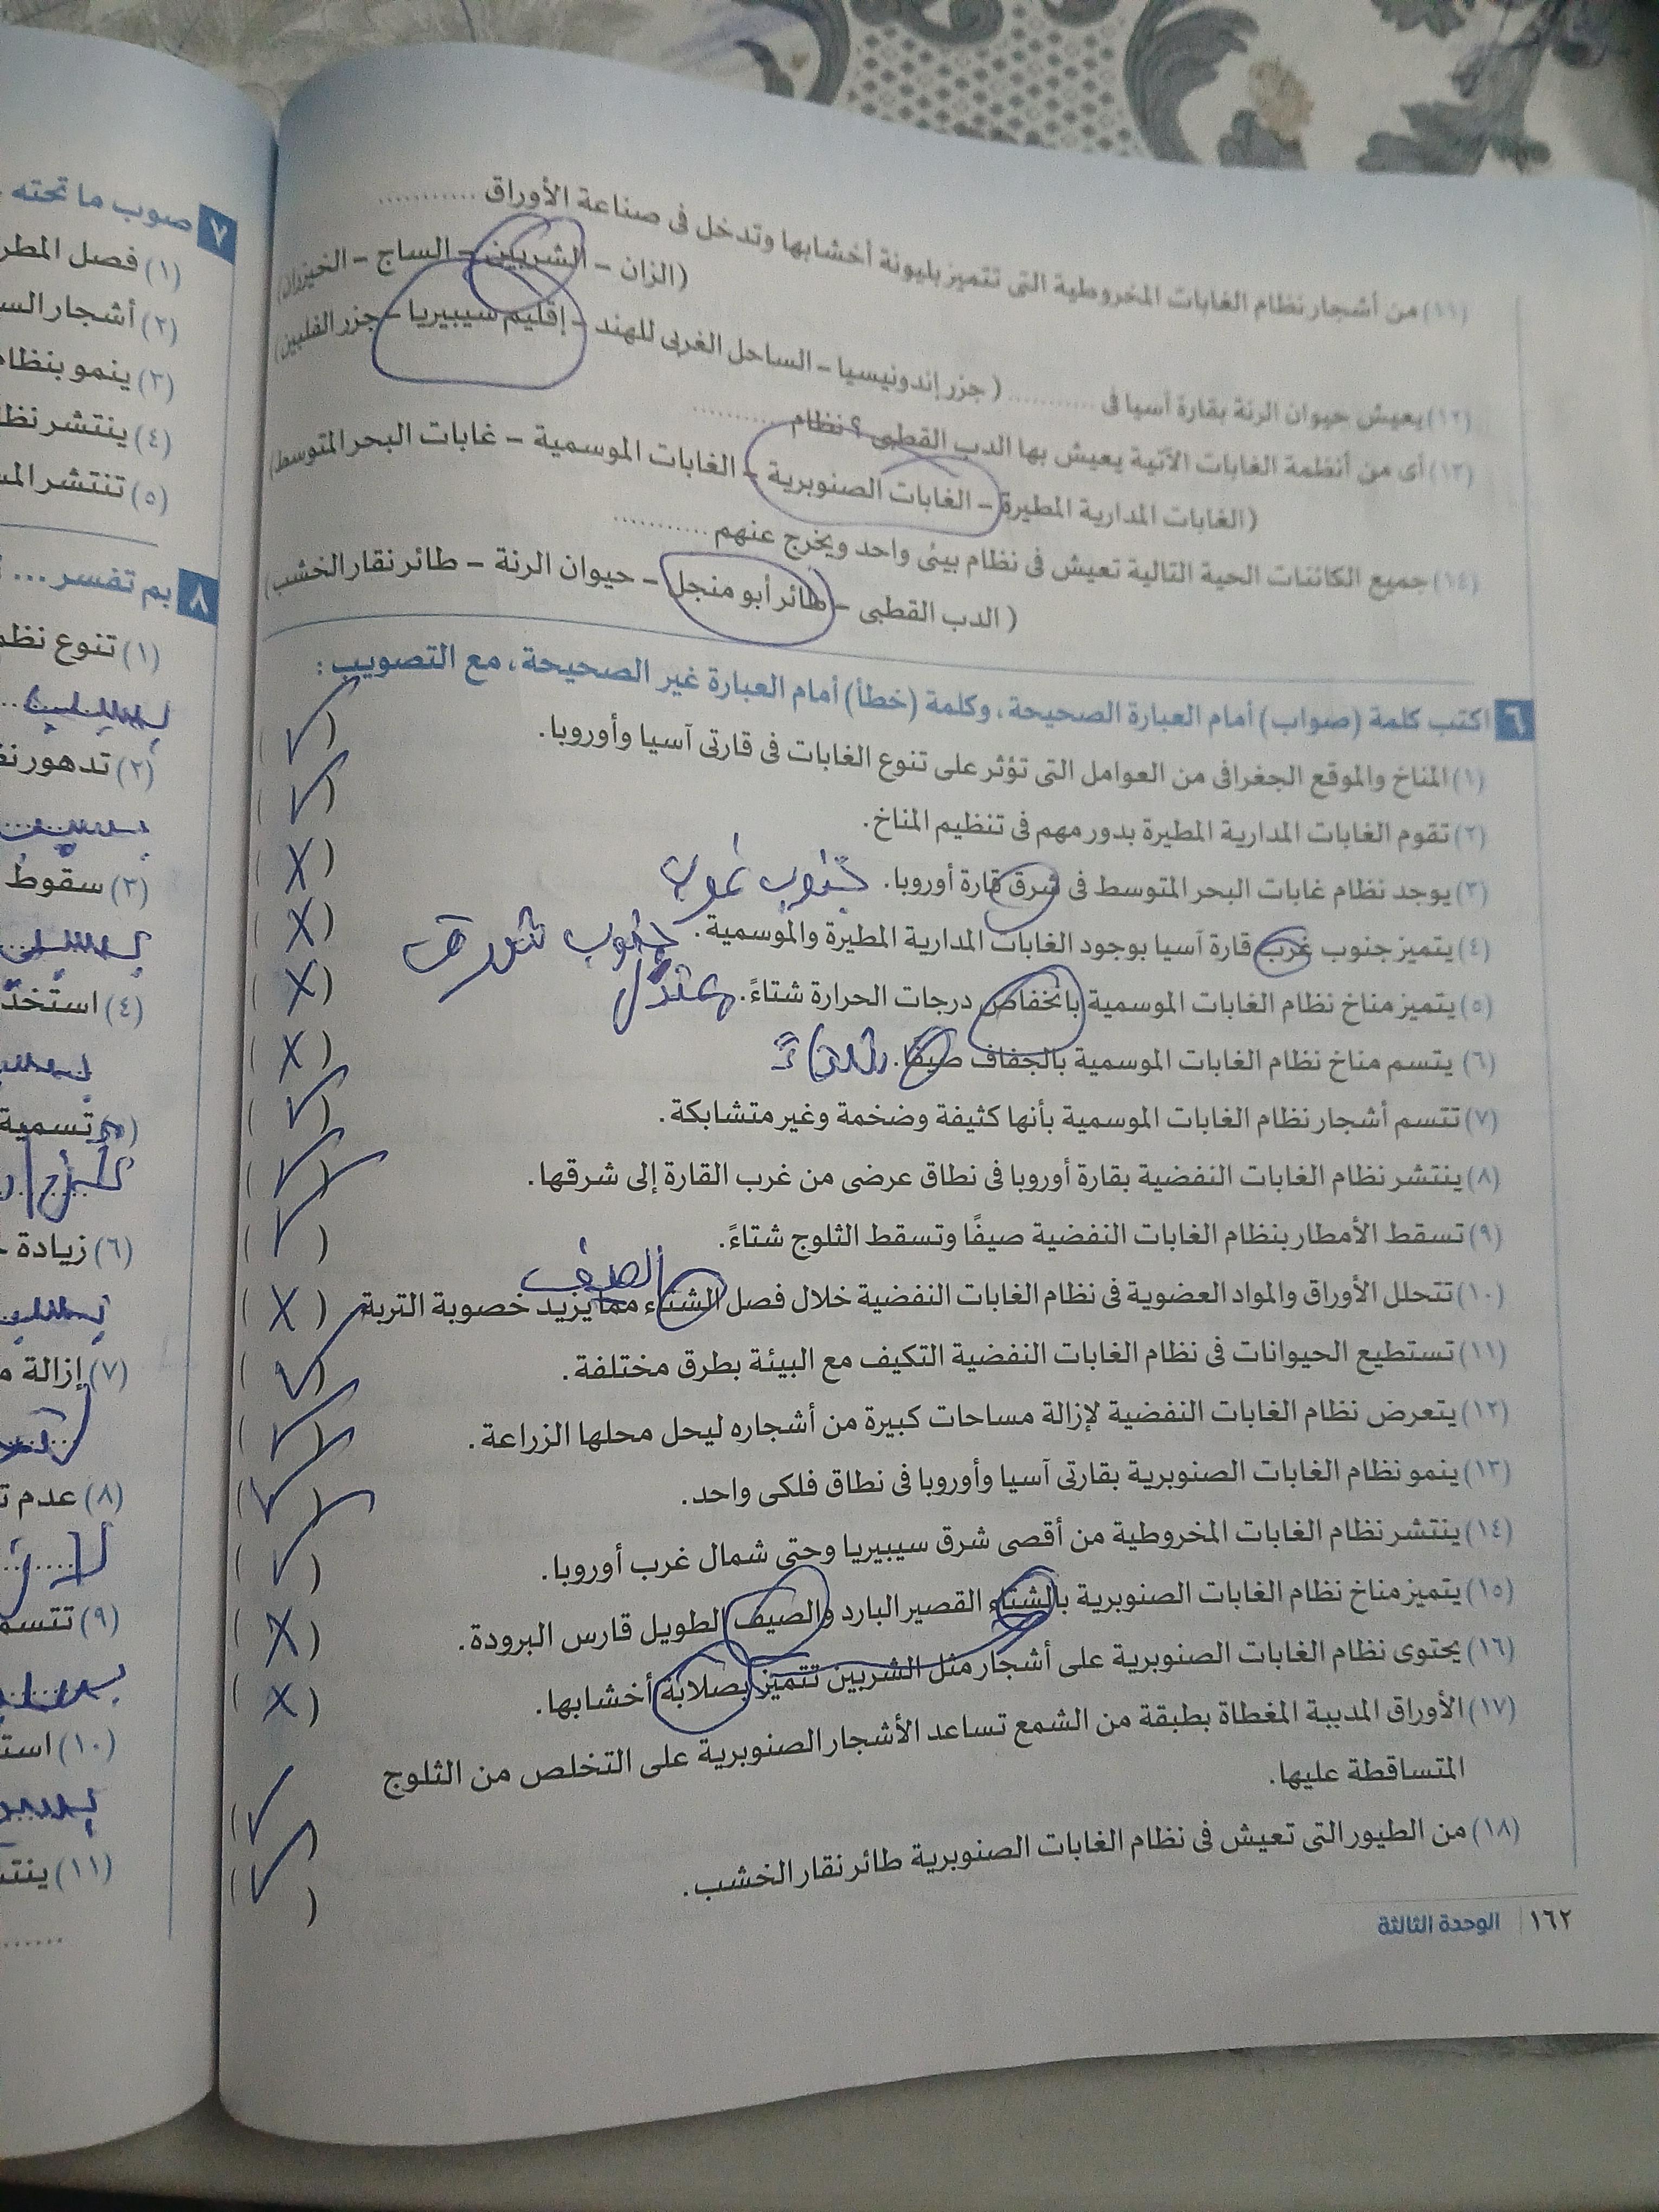 (١١) من أشجار نظام الغابات المخروطية التى تتميز بليونة أخشابها وتدخل فى صناعة الأوراق ...........
(الزان – الشربين – الساج – الخيزران)
(١٢) يعيش حيوان الرنة بقارة آسيا فى ........... ( جزر إندونيسيا – الساحل الغربى للهند – إقليم سيبيريا – جزر الفلبين)
(١٣) أى من أنظمة الغابات الآتية يعيش بها الدب القطبى ؟ نظام ...........
(الغابات المدارية المطيرة – الغابات الصنوبرية – الغابات الموسمية – غابات البحر المتوسط)
(١٤) جميع الكائنات الحية التالية تعيش فى نظام بيئى واحد ويخرج عنهم ...........
( الدب القطبى – طائر أبو منجل – حيوان الرنة – طائر نقار الخشب)
٦ اكتب كلمة (صواب) أمام العبارة الصحيحة، وكلمة (خطأ) أمام العبارة غير الصحيحة، مع التصويب :
(١) المناخ والموقع الجغرافى من العوامل التى تؤثر على تنوع الغابات فى قارتى آسيا وأوروبا. ( ✓ )
(٢) تقوم الغابات المدارية المطيرة بدور مهم فى تنظيم المناخ. ( ✓ )
(٣) يوجد نظام غابات البحر المتوسط فى شرق قارة أوروبا. جنوب غرب ( X )
(٤) يتميز جنوب غرب قارة آسيا بوجود الغابات المدارية المطيرة والموسمية. جنوب شرق ( X )
(٥) يتميز مناخ نظام الغابات الموسمية بانخفاض درجات الحرارة شتاءً. معتدل ( X )
(٦) يتسم مناخ نظام الغابات الموسمية بالجفاف صيفًا. شتاءً ( X )
(٧) تتسم أشجار نظام الغابات الموسمية بأنها كثيفة وضخمة وغير متشابكة. ( ✓ )
(٨) ينتشر نظام الغابات النفضية بقارة أوروبا فى نطاق عرضى من غرب القارة إلى شرقها. ( ✓ )
(٩) تسقط الأمطار بنظام الغابات النفضية صيفًا وتسقط الثلوج شتاءً. ( ✓ )
الصيف
(١٠) تتحلل الأوراق والمواد العضوية فى نظام الغابات النفضية خلال فصل الشتاء مما يزيد خصوبة التربة ( X )
(١١) تستطيع الحيوانات فى نظام الغابات النفضية التكيف مع البيئة بطرق مختلفة. ( ✓ )
(١٢) يتعرض نظام الغابات النفضية لإزالة مساحات كبيرة من أشجاره ليحل محلها الزراعة. ( ✓ )
(١٣) ينمو نظام الغابات الصنوبرية بقارتى آسيا وأوروبا فى نطاق فلكى واحد. ( ✓ )
(١٤) ينتشر نظام الغابات المخروطية من أقصى شرق سيبيريا وحتى شمال غرب أوروبا. ( ✓ )
(١٥) يتميز مناخ نظام الغابات الصنوبرية بالشتاء القصير البارد والصيف الطويل قارس البرودة. ( X )
(١٦) يحتوى نظام الغابات الصنوبرية على أشجار مثل الشربين تتميز بصلابة أخشابها. ( X )
(١٧) الأوراق المدببة المغطاة بطبقة من الشمع تساعد الأشجار الصنوبرية على التخلص من الثلوج
المتساقطة عليها. ( ✓ )
(١٨) من الطيور التى تعيش فى نظام الغابات الصنوبرية طائر نقار الخشب. ( ✓ )
١٦٢ | الوحدة الثالثة
٧ صوب ما تحته
(١) فصل المطر
(٢) أشجار
(٣) ينمو
(٤) ينتشر
(٥) تنتشر
٨ بم تفسر ...
(١) تنوع
(٢) تدهور
(٣) سقوط
(٤)
(٥) تسمية
(٦) زيادة
(٧) إزالة
(٨) عدم
(٩)
(١٠)
(١١)